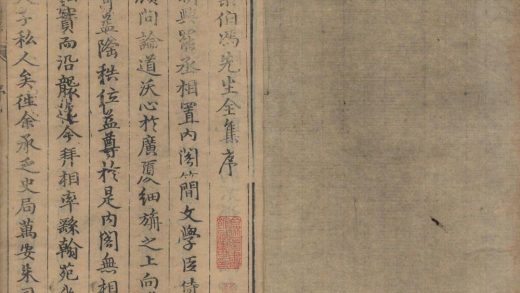 伯馮先生全集序
興罷丞相置內閣簡文學臣侍
顧問論道沃心於廣廈細旃之上向
益隆秩位益尊於是內閣無相
實而沿襲遂今拜相率繇翰苑
子私人矣往余承乏史局萬安朱